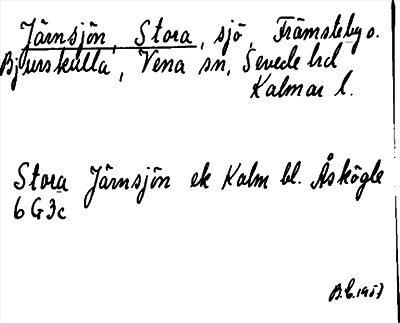 Järnsjön, Stora, sjö, Främsteby o.
Bjurskulla, Vena sn, Sevede hd
Kalmar l.
Stora Järnsjön ek Kalm bl. Åskögle
6 G3c
B.E. 1957